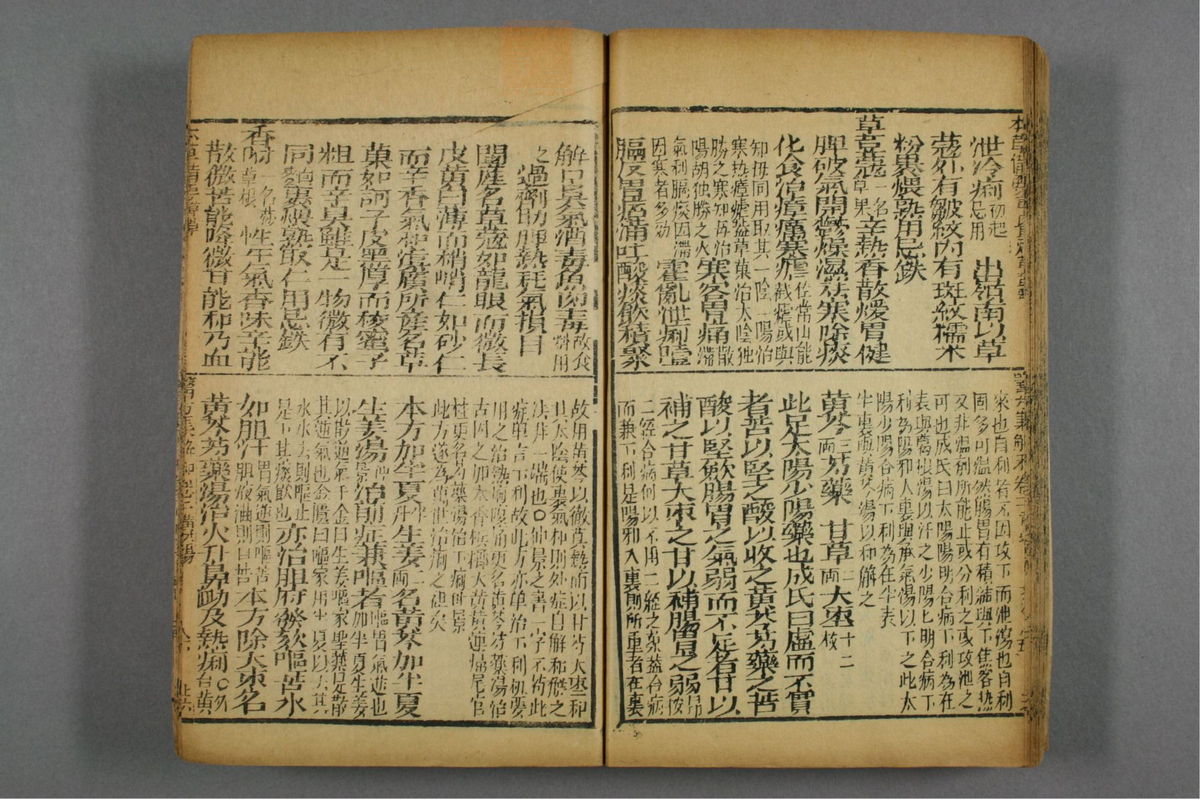 泄冷痢初起忌用 出嶺南以草
蔻外有皺紋內有斑紋糯米
粉裹煨熟用忌鉄
草荳蔻一名草果辛熱香散煖胃健
脾破氣開鬱燥濕祛寒除痰
化食治瘴癘寒瘧佐常山能截瘧或與
知毋同用取其一陰一陽治
寒熱瘴瘧蓋草菓治太陰獨
勝之寒知毋治陽明獨勝之火 寒客胃痛散滯
氣利膈痰因滯因寒者多効 霍亂泄痢噎
膈反胃痞滿吐酸痰飲積聚
來也自利者不因攻下而泄瀉也自利
固多可溫然腸胃有積滯與下焦客熱
又非溫劑所能止或分利之或攻泄之
可也成氏曰太陽陽明合病下利為在
表與葛根湯以汗之少陽陽明合病下
利為陽邪入裏與承氣湯以下之此太
陽少陽合病下利為在半表
半裏故與黃芩湯以和解之
黃芩三兩芍藥 甘草二兩大棗十二枚
此足太陽少陽藥也成氏曰虛而不實
者苦以堅之酸以收之黃芩芍藥之苦
酸以堅歛腸胃之氣弱而不足者甘以
補之甘草大棗之甘以補腸胃之弱昂按
二經合病何以不用二經之藥蓋合病
而兼下利是陽邪入裏則所重者在裏
解口臭氣酒毒魚肉毒故食料用
之 過劑助脾熱耗氣損目
閩産名草蔻如龍眼而微長
皮黃白薄而稍峭仁如砂仁
而辛香氣和滇廣所產名草
菓如訶子皮黑厚而稜蜜子
粗而辛臭雖是一物微有不
同麵裹煨熟取仁用忌鉄
香附一名莎草根 性平氣香味辛能
散微苦能降微甘能和乃血
故用黃芩以徹其熱而以甘芍大棗和
其太陰使裏氣和則外症自解和解之
法非一端也○仲景之書一字不苟此
症單言下利故此方亦單治下利機要
用之治熱痢腹痛更名黃芩芍藥湯治
古因之加木香檳榔大黃黃連歸尾官
桂更名芍藥湯治下痢仲景
此方遂為萬世治痢之祖矣
本方加半夏半升生姜三兩名黃芩加半夏
生姜湯仲景治前症兼嘔者胃氣逆也加半夏生姜
以散逆氣千金曰生姜嘔家聖藥是散
其逆氣也金匱曰嘔家用半夏以去其
水水去則嘔止是下其痰飲也 亦治胆府發欬嘔苦水
如胆汁胃氣逆則嘔苦胆液溢則口苦本方除大棗名
黃芩芍藥湯治火升鼻衄及熱痢